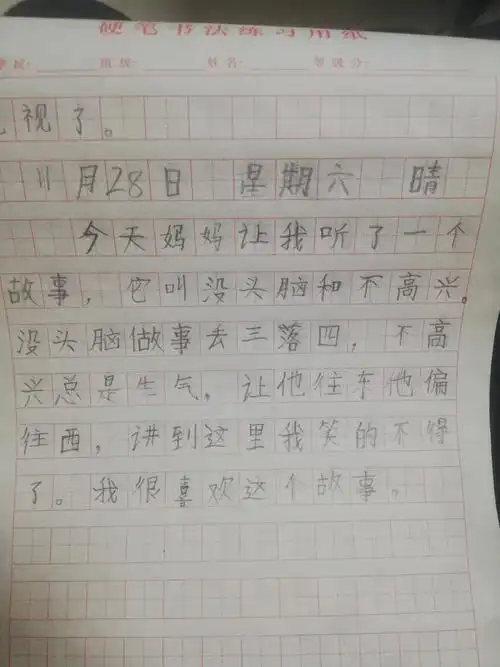 硬笔书法练习用纸
学校: 班级: 姓名: 等级分:
视了。
11月28日 星期六 晴
今天妈妈让我听了一个
故事，它叫没头脑和不高兴。
没头脑做事丢三落四，不高
兴总是生气，让他往东他偏
往西，讲到这里我笑的不得
了。我很喜欢这个故事。